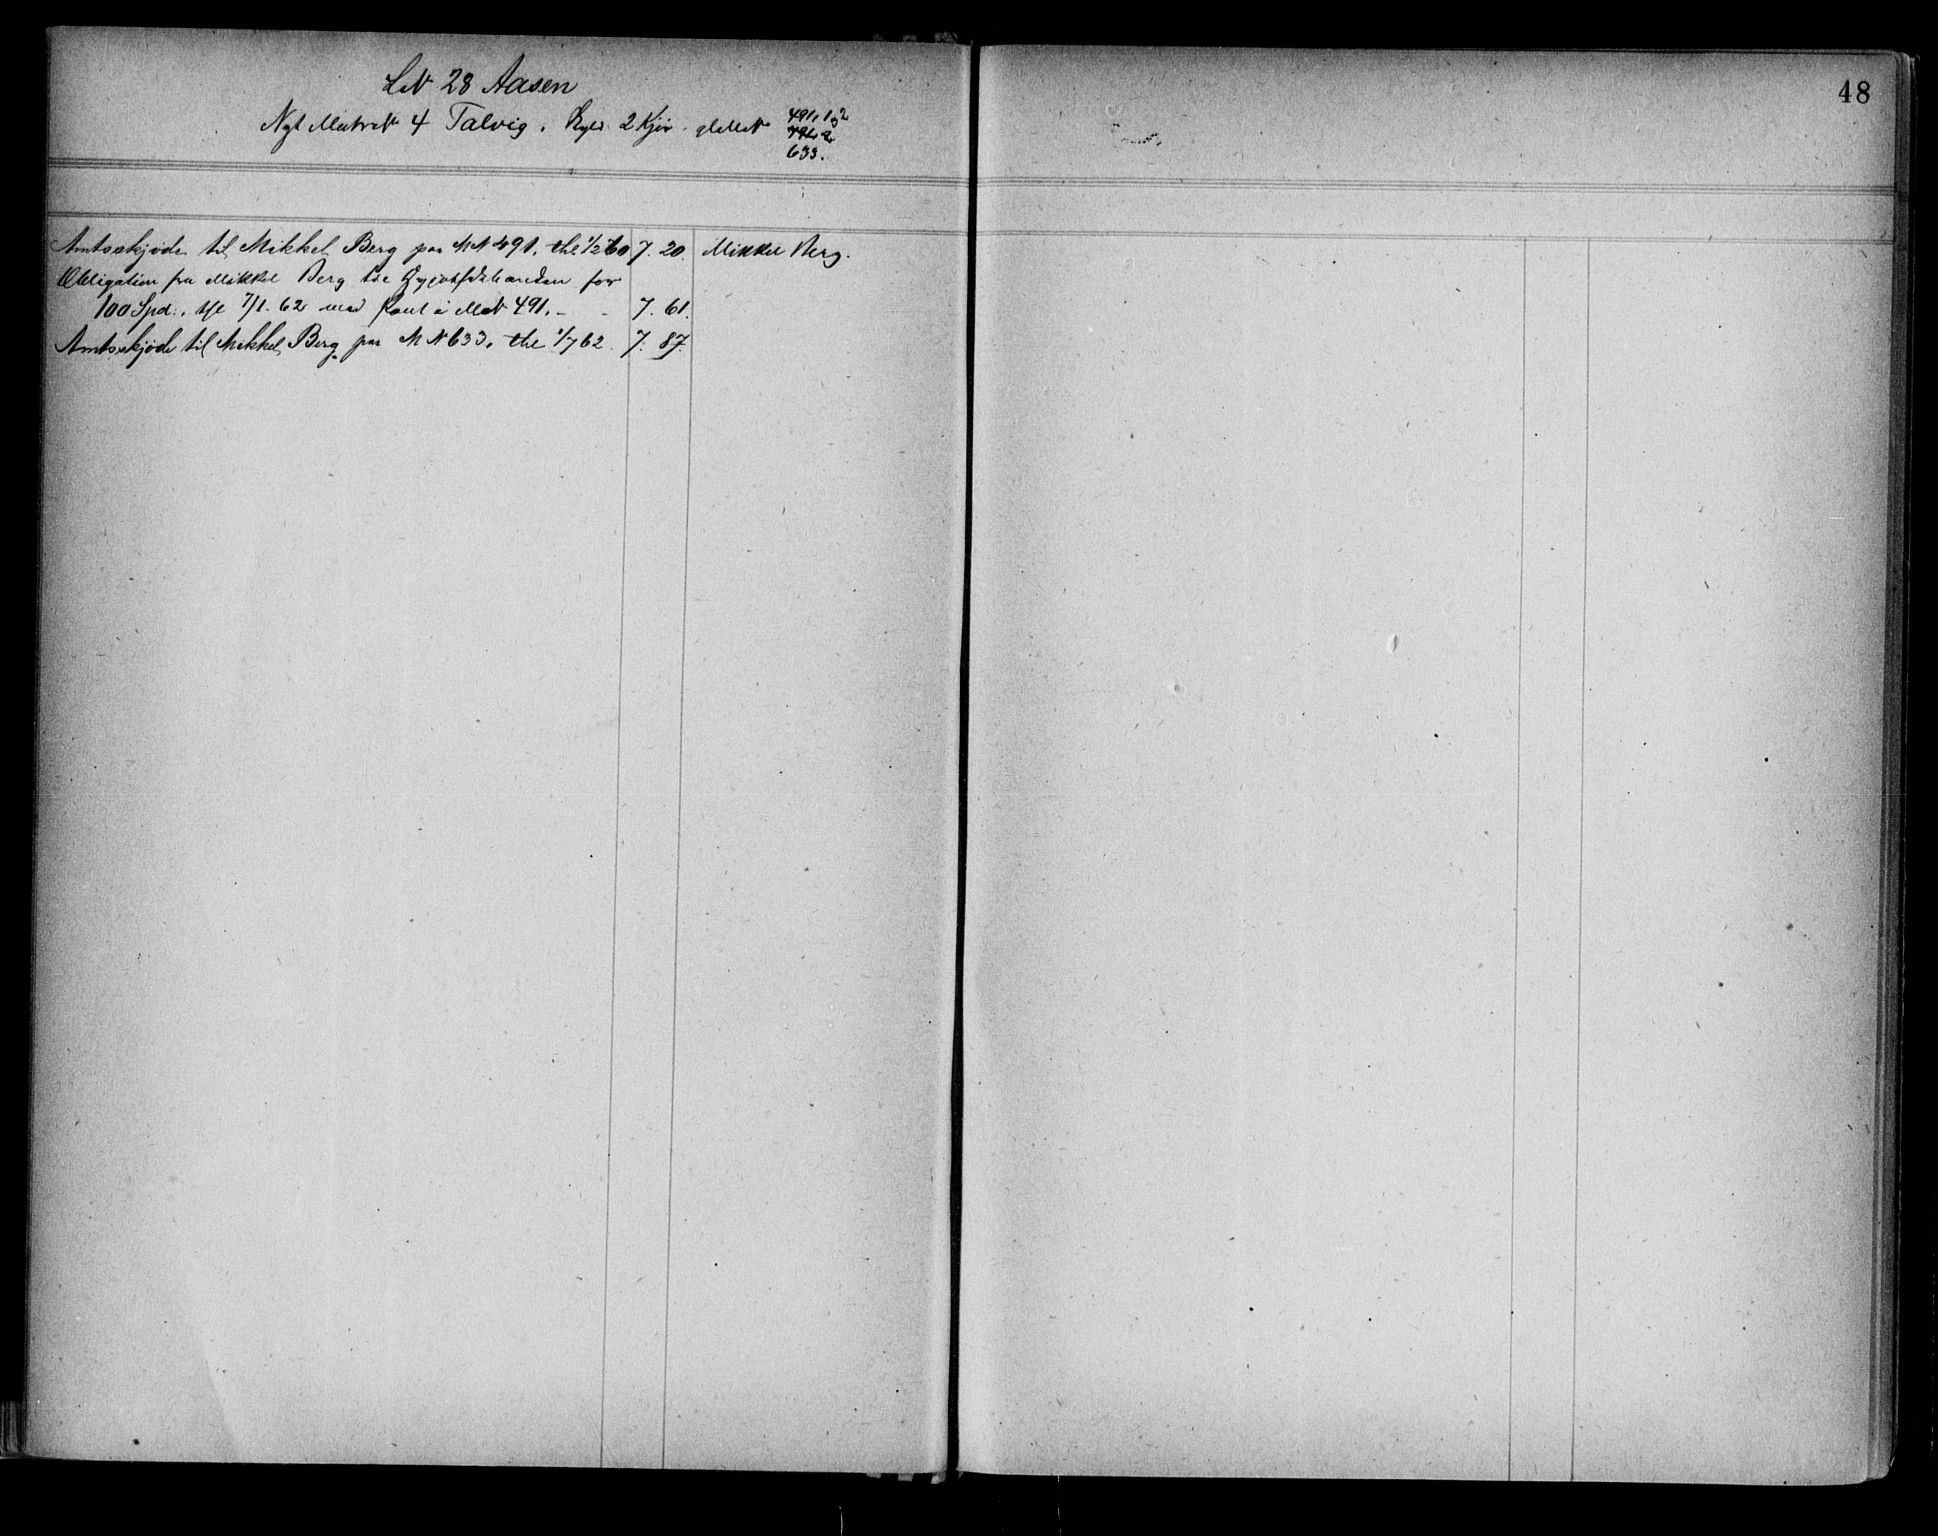 LN 28 Aasen
48
Nyt Matr N 4 Talvig. Skyld 2 Kjør. gl. Mat N 491, 1, 2
633.
Amtsskjøde til Mikkel Berg paa M N 491, thl 1/2 60 7. 20. Mikkel Berg.
Obligation fra Mikkel Berg til for
100 Spd., thl 7/1 62 med Pant i Mat N 491. - - 7. 61.
Amtsskjøde til Mikkel Berg paa M N 633, thl 1/7 62. 7. 87.